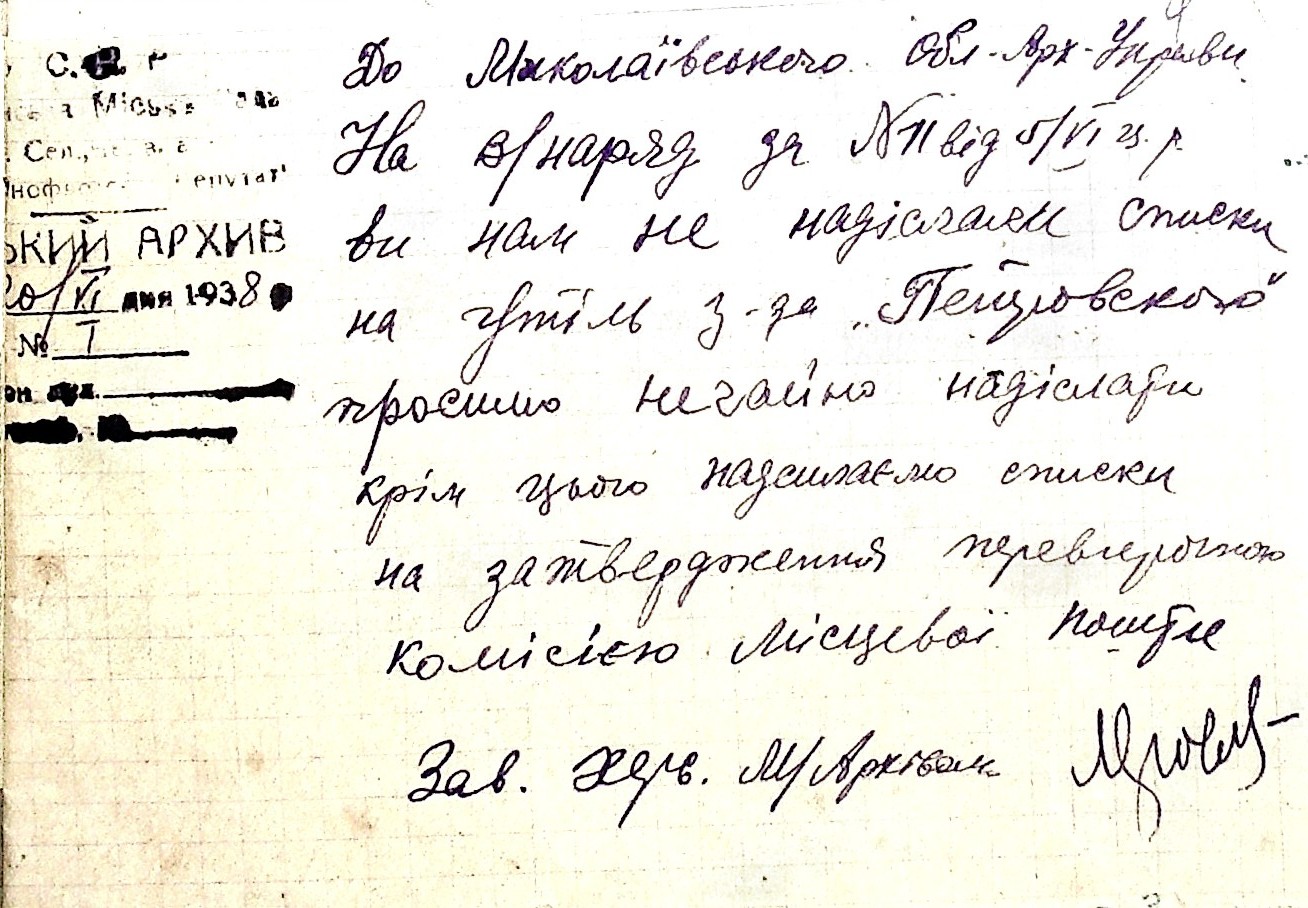 С. Р
Міськ
Сел.,
епутат
ЬКИЙ АРХИВ
20/VI дня 1938
№ I
До Миколаївського Обл-Арх-Управи
На в/наряд за N11 від 5/VI ц. р.
ви нам не надіслали списки
на утіль з-за „Петровского"
просимо негайно надіслати
крім цього надсилаємо списки
на затвердження перевірочною
комісією Місцевої пошти
Зав. Херс. М/Архівом